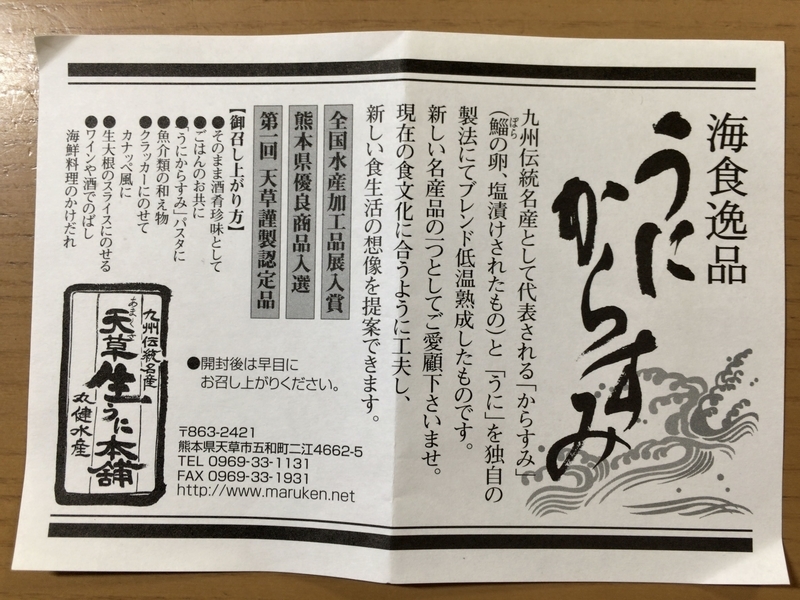 海食逸品
うに
からすみ
九州伝統名産として代表される「からすみ」
（鯔の卵、塩漬けされたもの）と「うに」を独自の
ぼら
製法にてブレンド低温熟成したものです。
新しい名産品の一つとしてご愛顧下さいませ。
現在の食文化に合うように工夫し、
新しい食生活の想像を提案できます。
全国水産加工品展入賞
熊本県優良商品入選
第一回 天草謹製認定品
【御召し上がり方】
●そのまま酒肴珍味として
●ごはんのお共に
●「うにからすみ」パスタに
●魚介類の和え物
●クラッカーにのせて
カナッペ風に
●生大根のスライスにのせる
●ワインや酒でのばし
海鮮料理のかけだれ
●開封後は早目に
お召し上がりください。
〒863-2421
熊本県天草市五和町二江4662-5
TEL 0969-33-1131
FAX 0969-33-1931
http://www.maruken.net
九州伝統名産
あまくさ
天草生うに本舗
丸健水産